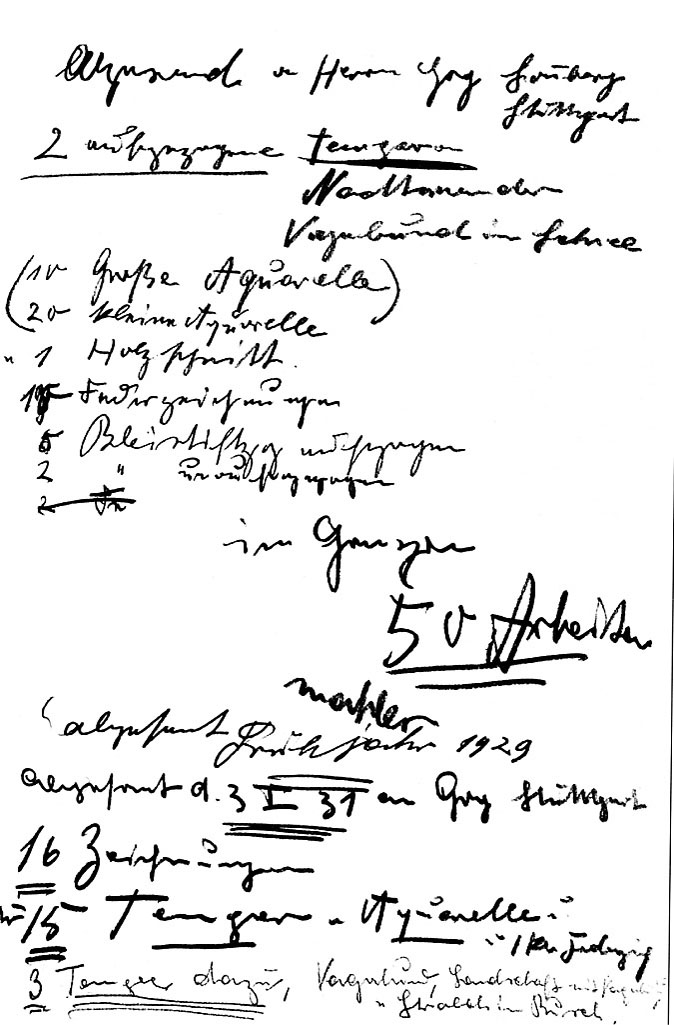 Abgesandt an Herrn Gog
Stuttgart
2 aufgezogene Tempera
Nachtwandler
Vagabund im Schnee
(10 Große Aquarelle)
20 kleine Aquarelle
" 1 Holzschnitt.
15 Federzeichnungen
5 Bleistiftzg aufgezogen
2 " unaufgezogen
2
im Ganzen
50 Arbeiten
abgesant Frühjahr 1929
abgesant d. 3 I 31 an Gog Stuttgart
16 Zeichnungen
15 Tempera u Aquarelle
3 Temper dazu, Vagabund, Landschaft mit